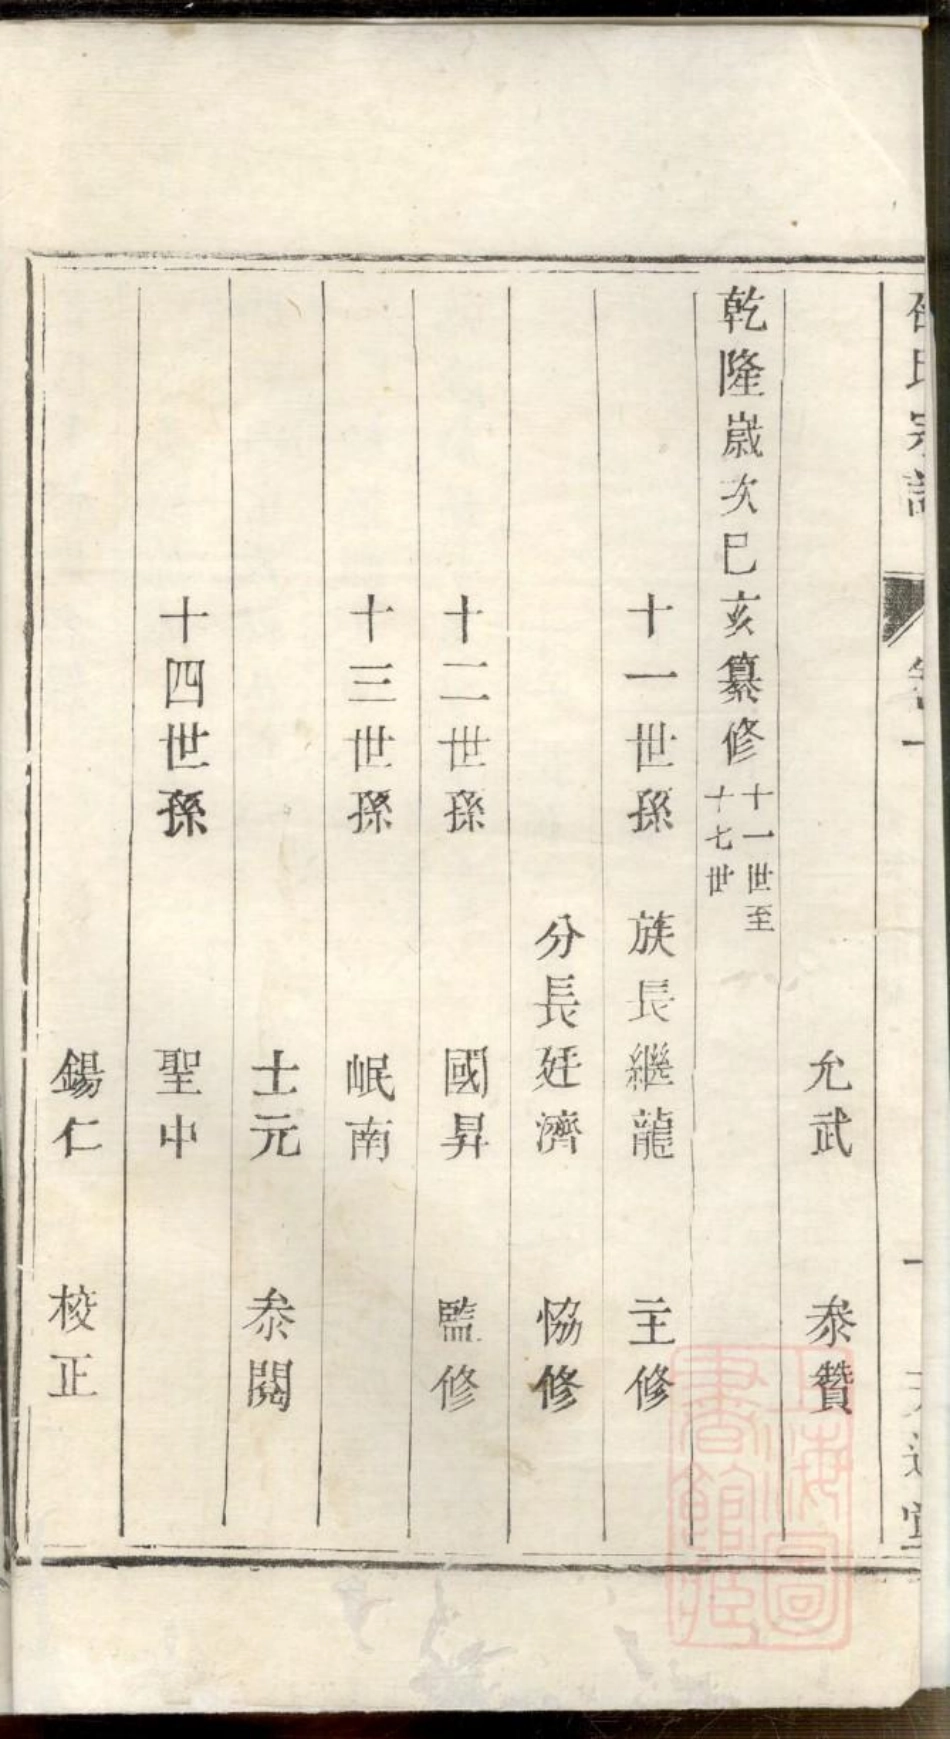 氏宗譜 卷一 一
允武 叅贊
乾隆歲次己亥纂修 十一世至
十七世
十一世孫 族長繼龍 主修
分長廷濟 恊修
十二世孫 國昇 監修
十三世孫 岷南
士元 叅閱
十四世孫 聖中
錫仁 校正
上海圖書館藏